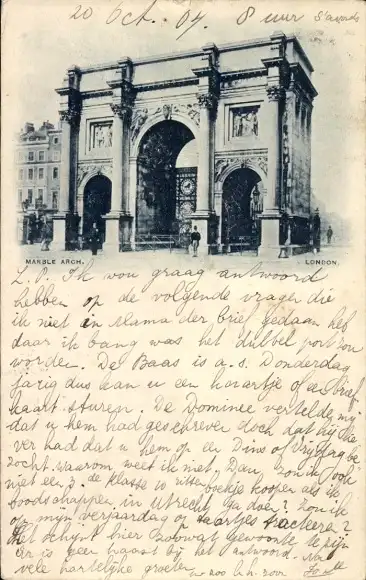 20 Oct. 04. 8 uur 's avonds
MARBLE ARCH.
LONDON.
L. P. Ik wou graag antwoord
hebben op de volgende vragen die
ik niet in Mama der brief gedaan heb
daar ik bang was het dubbel port zou
worden. De Baas is a.s. Donderdag
jarig dus kan u een kaartje of een brief
kaart sturen. De Dominee vertelde mij
dat u hem had geschreven doch dat hij
ver had dat u hem op een Dins of Vrijdag be
zocht waarom weet ik niet. Dan zou ik ook
niet een 3e klasse
boekje koopen als ik
boodschappen in Utrecht ga doen? Zou ik
op mijn verjaardag op taartjes tracteeren?
Het schijnt hier zoowat gewoonte te zijn
er is geen haast bij het antwoord. Nu
vele hartelijke groeten